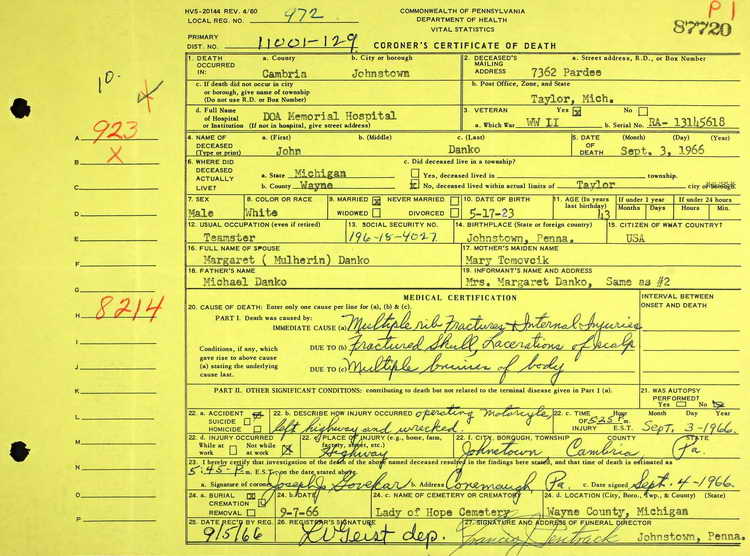 HVS-20144 REV. 4/60
COMMONWEALTH OF PENNSYLVANIA
P1
LOCAL REG. NO. 972
DEPARTMENT OF HEALTH
87720
VITAL STATISTICS
PRIMARY
DIST. NO. 11001-129
CORONER'S CERTIFICATE OF DEATH
1. DEATH OCCURRED IN: a. County Cambria b. City or borough Johnstown
2. DECEASED'S MAILING ADDRESS a. Street address, R.D., or Box Number 7362 Pardee
c. If death did not occur in city or borough, give name of township (Do not use R.D. or Box Number)
b. Post Office, Zone, and State Taylor, Mich.
d. Full Name of Hospital or Institution (If not in hospital, give street address) DOA Memorial Hospital
3. VETERAN Yes No
a. Which War WW II b. Serial No. RA- 13145618
4. NAME OF DECEASED (Type or print) a. (First) John b. (Middle) c. (Last) Danko
5. DATE OF DEATH (Month) (Day) (Year) Sept. 3, 1966
6. WHERE DID DECEASED ACTUALLY LIVE? a. State Michigan b. County Wayne
c. Did deceased live in a township?
Yes, deceased lived in township.
No, deceased lived within actual limits of Taylor city or borough
7. SEX Male
8. COLOR OR RACE White
9. MARRIED NEVER MARRIED WIDOWED DIVORCED
10. DATE OF BIRTH 5-17-23
11. AGE (In years last birthday) 43
If under 1 year Months Days
If under 24 hours Hours Min.
12. USUAL OCCUPATION (even if retired) Teamster
13. SOCIAL SECURITY NO. 196-18-4027
14. BIRTHPLACE (State or foreign country) Johnstown, Penna.
15. CITIZEN OF WHAT COUNTRY? USA
16. FULL NAME OF SPOUSE Margaret ( Mulherin) Danko
17. MOTHER'S MAIDEN NAME Mary Tomovcik
18. FATHER'S NAME Michael Danko
19. INFORMANT'S NAME AND ADDRESS Mrs. Margaret Danko, Same as #2
MEDICAL CERTIFICATION
INTERVAL BETWEEN ONSET AND DEATH
20. CAUSE OF DEATH: Enter only one cause per line for (a), (b) & (c).
PART I. Death was caused by:
IMMEDIATE CAUSE (a) Multiple rib Fractures & Internal Injuries
Conditions, if any, which gave rise to above cause (a) stating the underlying cause last.
DUE TO (b) Fractured Skull, Lacerations of scalp
DUE TO (c) Multiple bruises of body
PART II. OTHER SIGNIFICANT CONDITIONS: contributing to death but not related to the terminal disease given in Part I (a).
21. WAS AUTOPSY PERFORMED? Yes No
22. a. ACCIDENT SUICIDE HOMICIDE
22. b. DESCRIBE HOW INJURY OCCURRED operating motorcycle left highway and wrecked.
22. c. TIME OF INJURY Hour 5:25 P.m. E.S.T. Month Day Year Sept. 3-1966.
22. d. INJURY OCCURRED While at work Not while at work
22. e. PLACE OF INJURY (e.g., home, farm, factory, street, etc.) Highway
22. f. CITY, BOROUGH, TOWNSHIP Johnstown COUNTY Cambria STATE Pa.
23. I hereby certify that investigation of the death of the above named deceased resulted in the findings here stated, and that time of death is estimated as
5:45-P m. E.S.T. on the date stated above.
a. Signature of coroner Joseph J. Govekar b. Address Conemaugh, Pa. c. Date signed Sept. 4-1966.
24. a. BURIAL CREMATION REMOVAL
24. b. DATE 9-7-66
24. c. NAME OF CEMETERY OR CREMATORY Lady of Hope Cemetery
24. d. LOCATION (City, Boro, Twp., & County) (State) Wayne County, Michigan
25. DATE REC'D BY REG. 9/5/66
26. REGISTRAR'S SIGNATURE LV Geist dep.
27. SIGNATURE AND ADDRESS OF FUNERAL DIRECTOR Johnstown, Penna.
10.
A 923
B X
C
D
E
F
G
H 8214
I
J
K
L
M
N
O
P